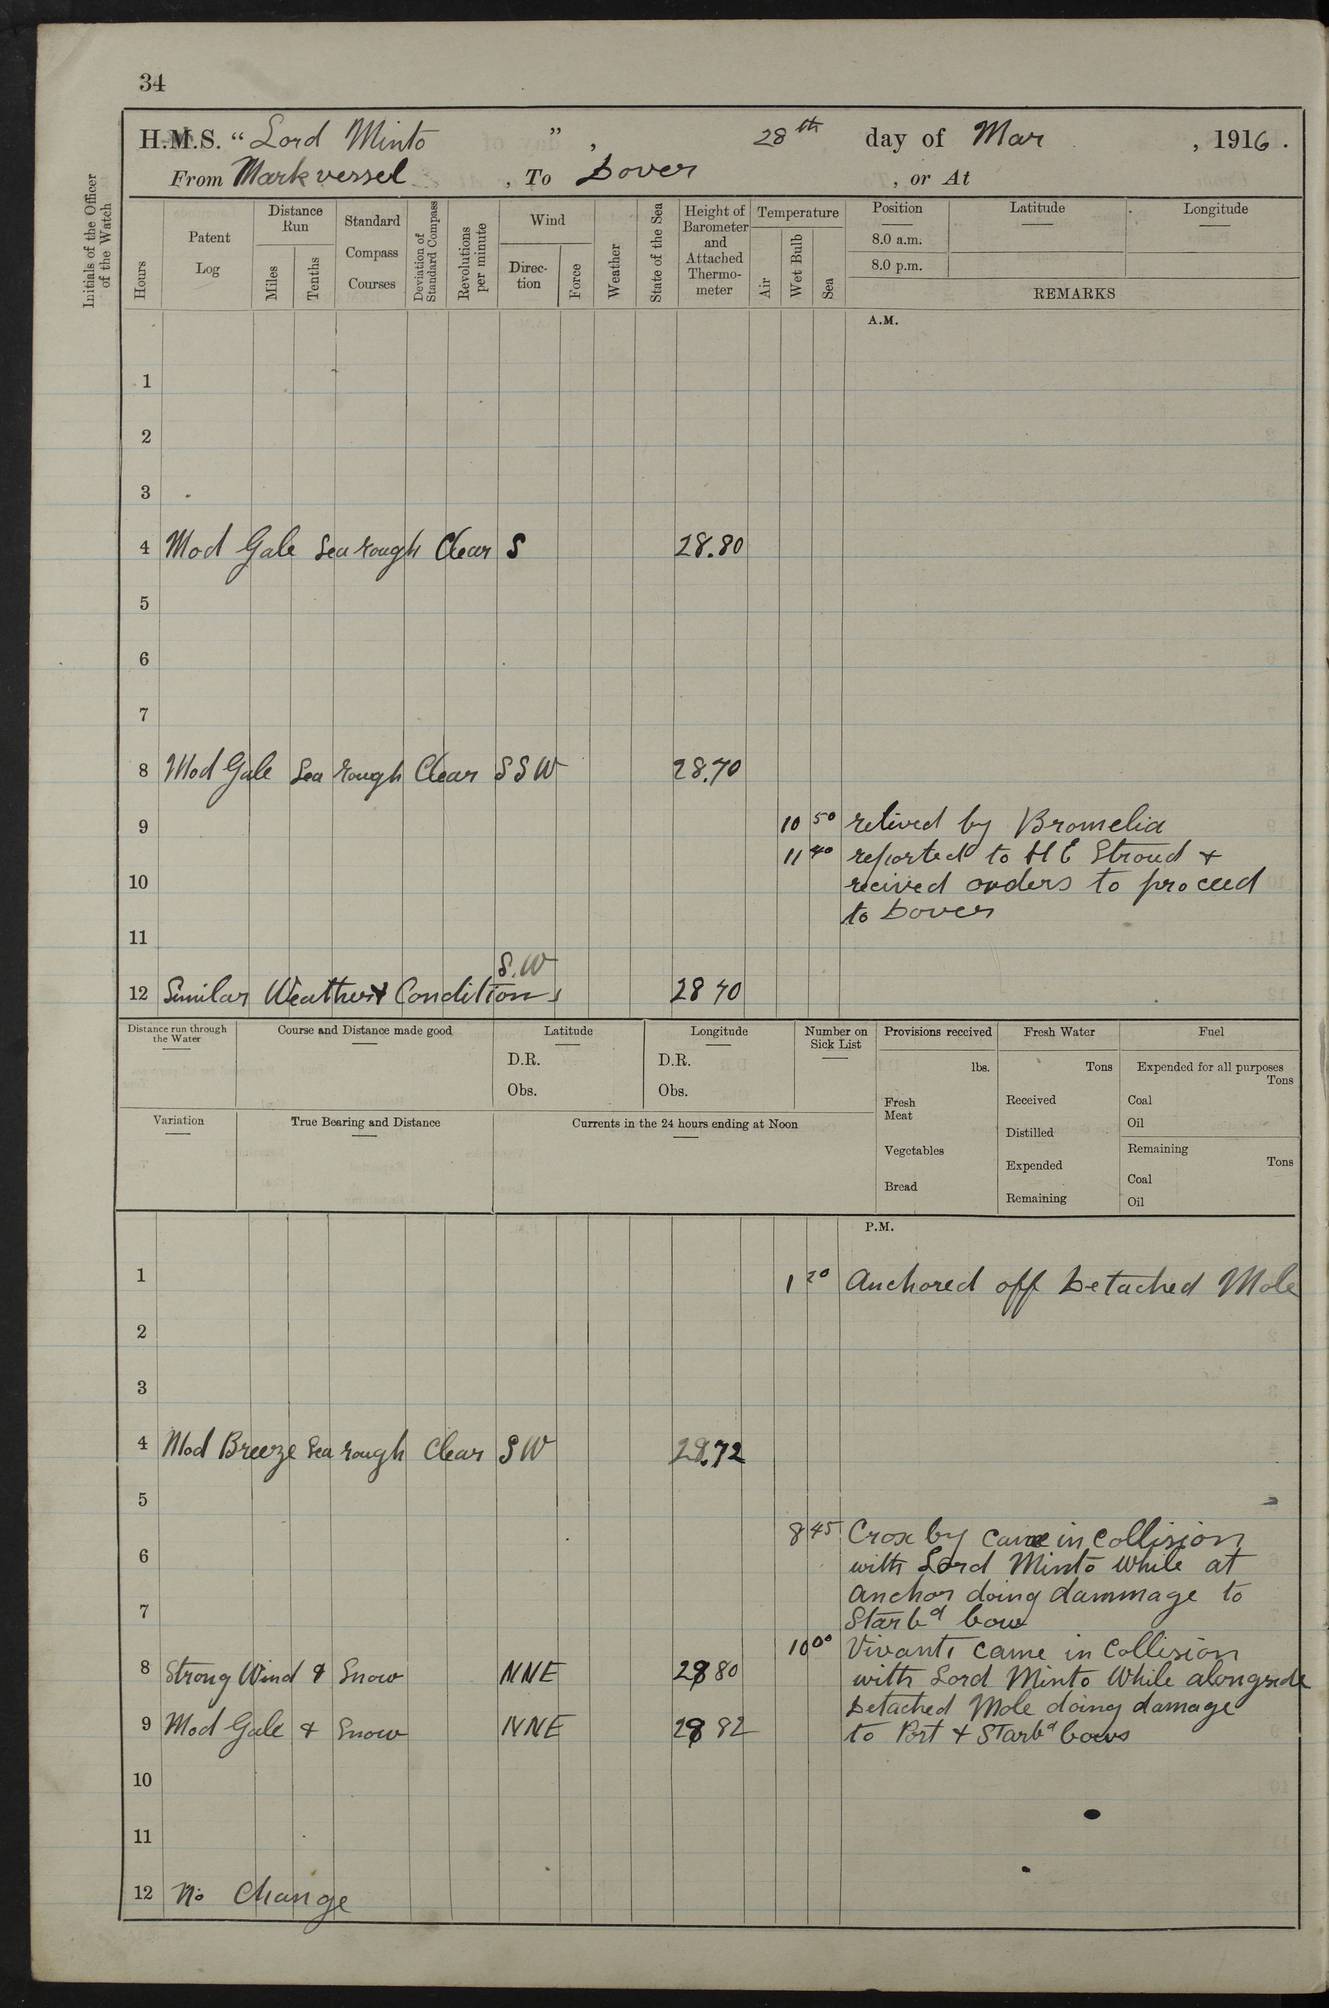 34
H.M.S. “ Lord Minto ” , 28th day of Mar , 1916 .
From Mark vessel , To Dover , or At
Initials of the Officer of the Watch
Hours
Patent Log
Distance Run
Miles
Tenths
Standard Compass Courses
Deviation of Standard Compass
Revolutions per minute
Wind
Direc- tion
Force
Weather
State of the Sea
Height of Barometer and Attached Thermo- meter
Temperature
Air
Wet Bulb
Sea
Position
8.0 a.m.
8.0 p.m.
Latitude
Longitude
REMARKS
A.M.
1
2
3
4 Mod Gale Sea rough Clear S 28.80
5
6
7
8 Mod Gale Sea rough Clear SSW 28.70
9 10 50 relived by Bromelia
11 40 reported to HE Stroud +
10 recived orders to proceed
to Dover
11
S.W
12 Similar Weather Conditions 28 70
Distance run through the Water
Course and Distance made good
Latitude
D.R.
Obs.
Longitude
D.R.
Obs.
Number on Sick List
Provisions received
lbs.
Fresh Meat
Vegetables
Bread
Fresh Water
Tons
Received
Distilled
Expended
Remaining
Fuel
Expended for all purposes
Tons
Coal
Oil
Remaining
Tons
Coal
Oil
Variation
True Bearing and Distance
Currents in the 24 hours ending at Noon
P.M.
1 1 20 Anchored off Detached Mole
2
3
4 Mod Breeze Sea rough Clear SW 28.72
5
8 45 Crox by came in collision
6 with Lord Minto while at
anchor doing dammage to
7 Starbd bow
10 00 Vivanti came in Collision
8 Strong Wind & Snow NNE 28 80 with Lord Minto While alongside
Detached Mole doing damage
9 Mod Gale & Snow NNE 28 82 to Port + Starbd bows
10
11
12 No Change